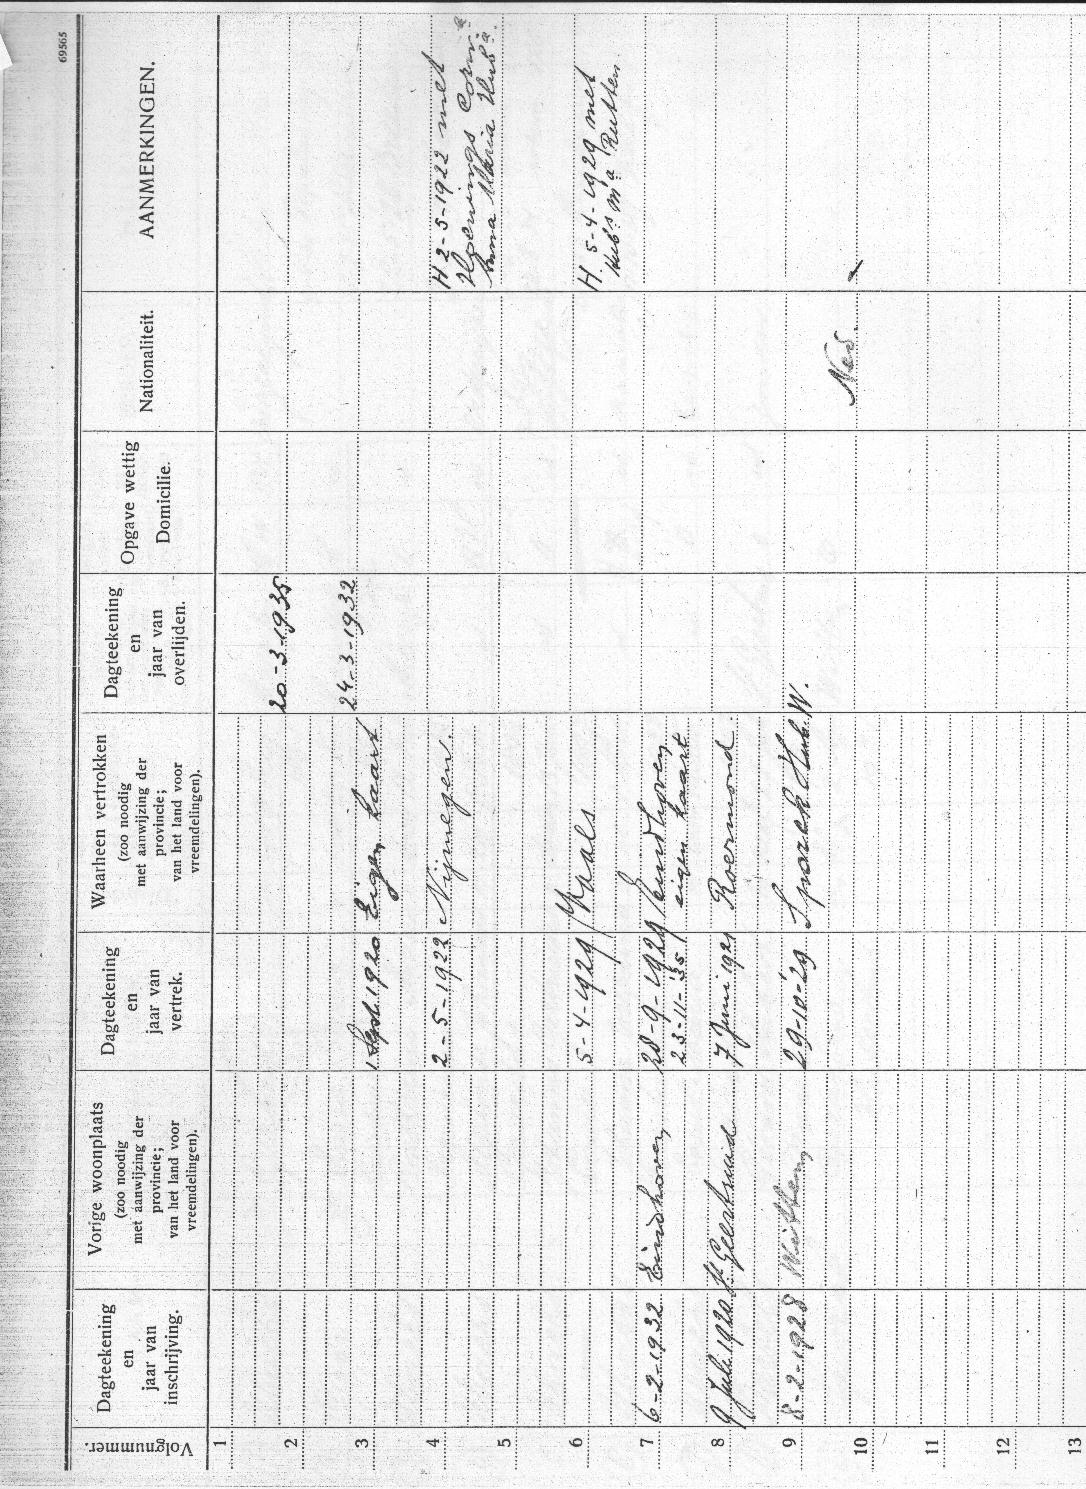 69565
Volgnummer.
Dagteekening
en
jaar van
inschrijving.
Vorige woonplaats
(zoo noodig
met aanwijzing der
provincie;
van het land voor
vreemdelingen).
Dagteekening
en
jaar van
vertrek.
Waarheen vertrokken
(zoo noodig
met aanwijzing der
provincie;
van het land voor
vreemdelingen).
Dagteekening
en
jaar van
overlijden.
Opgave wettig
Domicilie.
Nationaliteit.
AANMERKINGEN.
1
20-3-1935
2
24-3-1932
3
1 Sept 1920 Eigen kaart
4
2-5-1922 Nijmegen.
H 2-5-1922 met
Anna Maria Hub.a
5
6
5-4-1929 Vaals
H 5-4-1929 met
Hub.a M.a Rutten
7
6-2-1932 Eindhoven 28-9-1929 Eindhoven
23-11-'35 eigen kaart
8
9 Juli 1920 St Geertruid 7 Juni 1921 Roermond.
9
8-2-1928 Wittem 29-10-'29 Hub. W.
Ned.
10
11
12
13